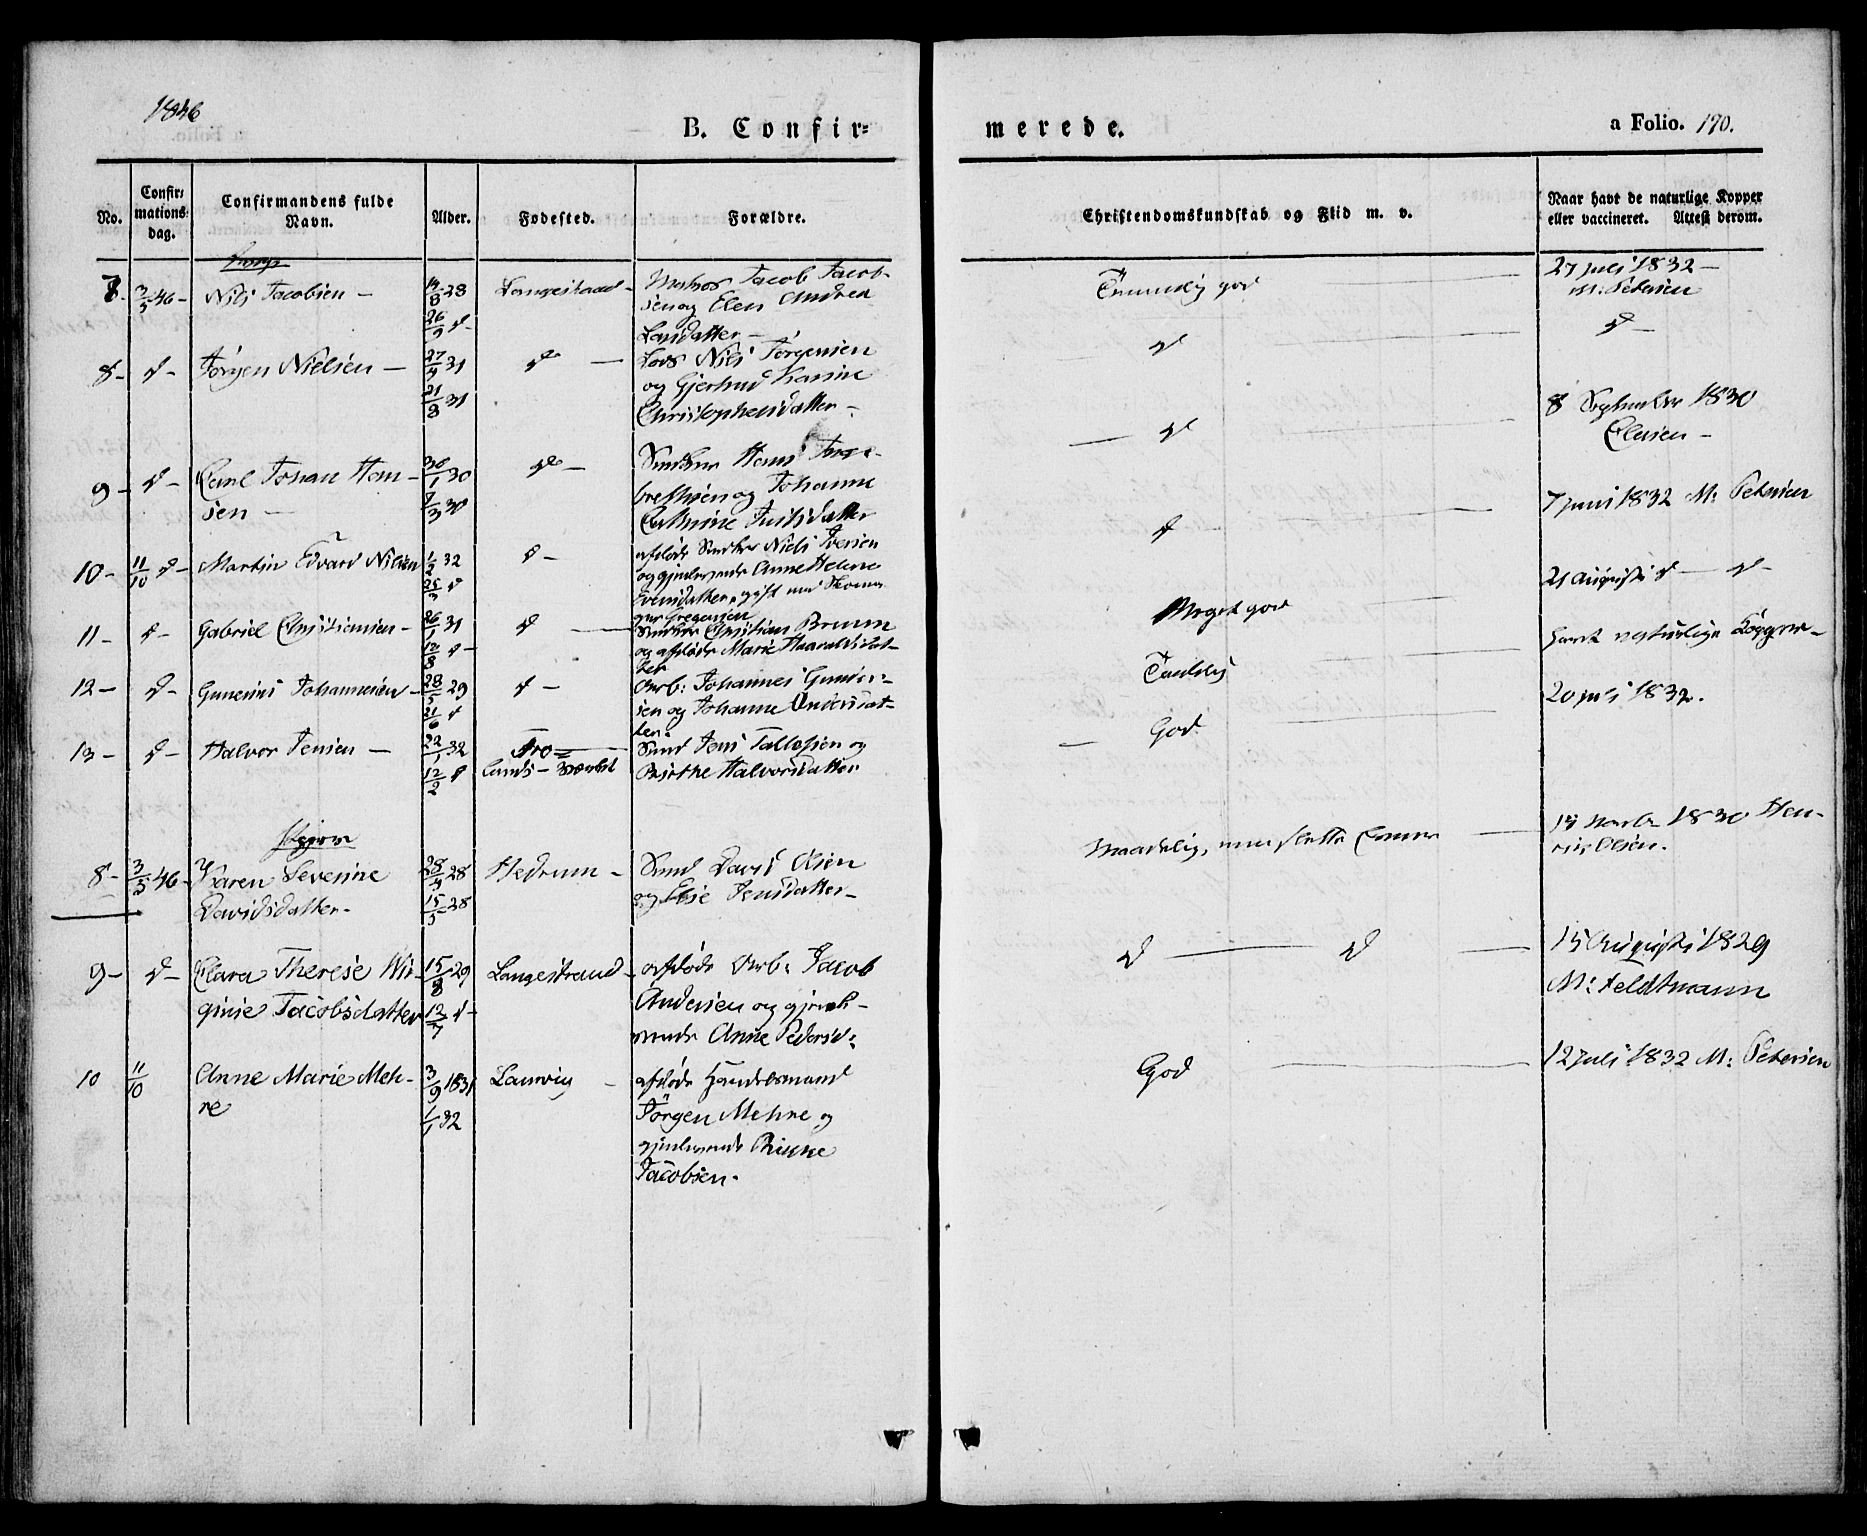 1846
B. Confirmerede.
a Folio. 190.
No.
Confirmations-dag.
Confirmandens fulde Navn.
Alder.
Fødested.
Forældre.
Christendomskundskab og Flid m. v.
Naar havt de naturlige Kopper eller vaccineret. Attest derom.
7- 3/5 46- Nils Jacobsen - 14/8 28 26/9 d- Langestrand - Matros Jacob Jacob-
sen og Elen Andrea
Larsdatter -
27 Juli 1832 -
M: Petersen
8- d- Jörgen Nielsen - 27/4 31 21/8 31 d - Lods Nils Jörgensen
og Gjerthrud Karine
Christophersdatter -
d
d -
9- d- Carl Johan Han-
sen - 30/1 30 7/3 30 d - Smeksv Hans
og Johanne
Cathrine
d
8 September 1830
Elusen -
10- 11/10 d- Martin Edvard Nilsen 1/2 32 25/3 d d - afdöde Niels Iversen
og gjenlevende Anne Helene
Evensdatter, gift med
Gregersen
d
7 juni 1832 M: Petersen
11- d- Gabriel Christiansen - 26/1 31 12/8 d- d - Christian Bruun
og afdöde Marie Haaraldsdat-
ter
Meget god
21 Augusti d - d -
12- d- Gunerius Johannesen - 28/5 29 21/6 d d - Arb: Johannes Gunder-
sen og Johanne Andersdat-
ter.
havt naturlige Kopper -
13- d- Halvor Jensen - 22/1 32 12/2 d Fro=
lands-Værket Jens Tallefsen og
Birthe Halvorsdatter
God
20 juli 1832.
Piger
8- 3/5 46- Karen Severine
Davidsdatter - 28/4 28 15/5 28 Hedrum - David Olsen
og Else Jensdatter -
Maadelig, men
1830 Hen-
rik Olsen.
9- d- Clara Therese Vir-
ginie Jacobsdatter 15/8 29 12/7 d- Langestrand - afdöde Arb: Jacob
Andersen og gjenle-
vende Anne Pedersd:
d - d -
15 Augusti 1829
M: Feldtmann
10 11/10 Anne Marie Meh-
re 3/9 1831 1/1 32 Laurvig - afdöde Handelsmand
Jörgen Mehre og
gjenlevende Rikke
Jacobsen.
God
12 Juli 1832 M: Petersen